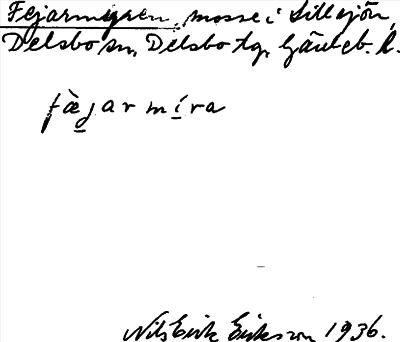 Fejarmyren, mosse i Lillsjön,
Delsbo sn, Delsbo tg, Gävleb. l.
fæ̀jarmíra
Nils Erik Eriksson 1936.